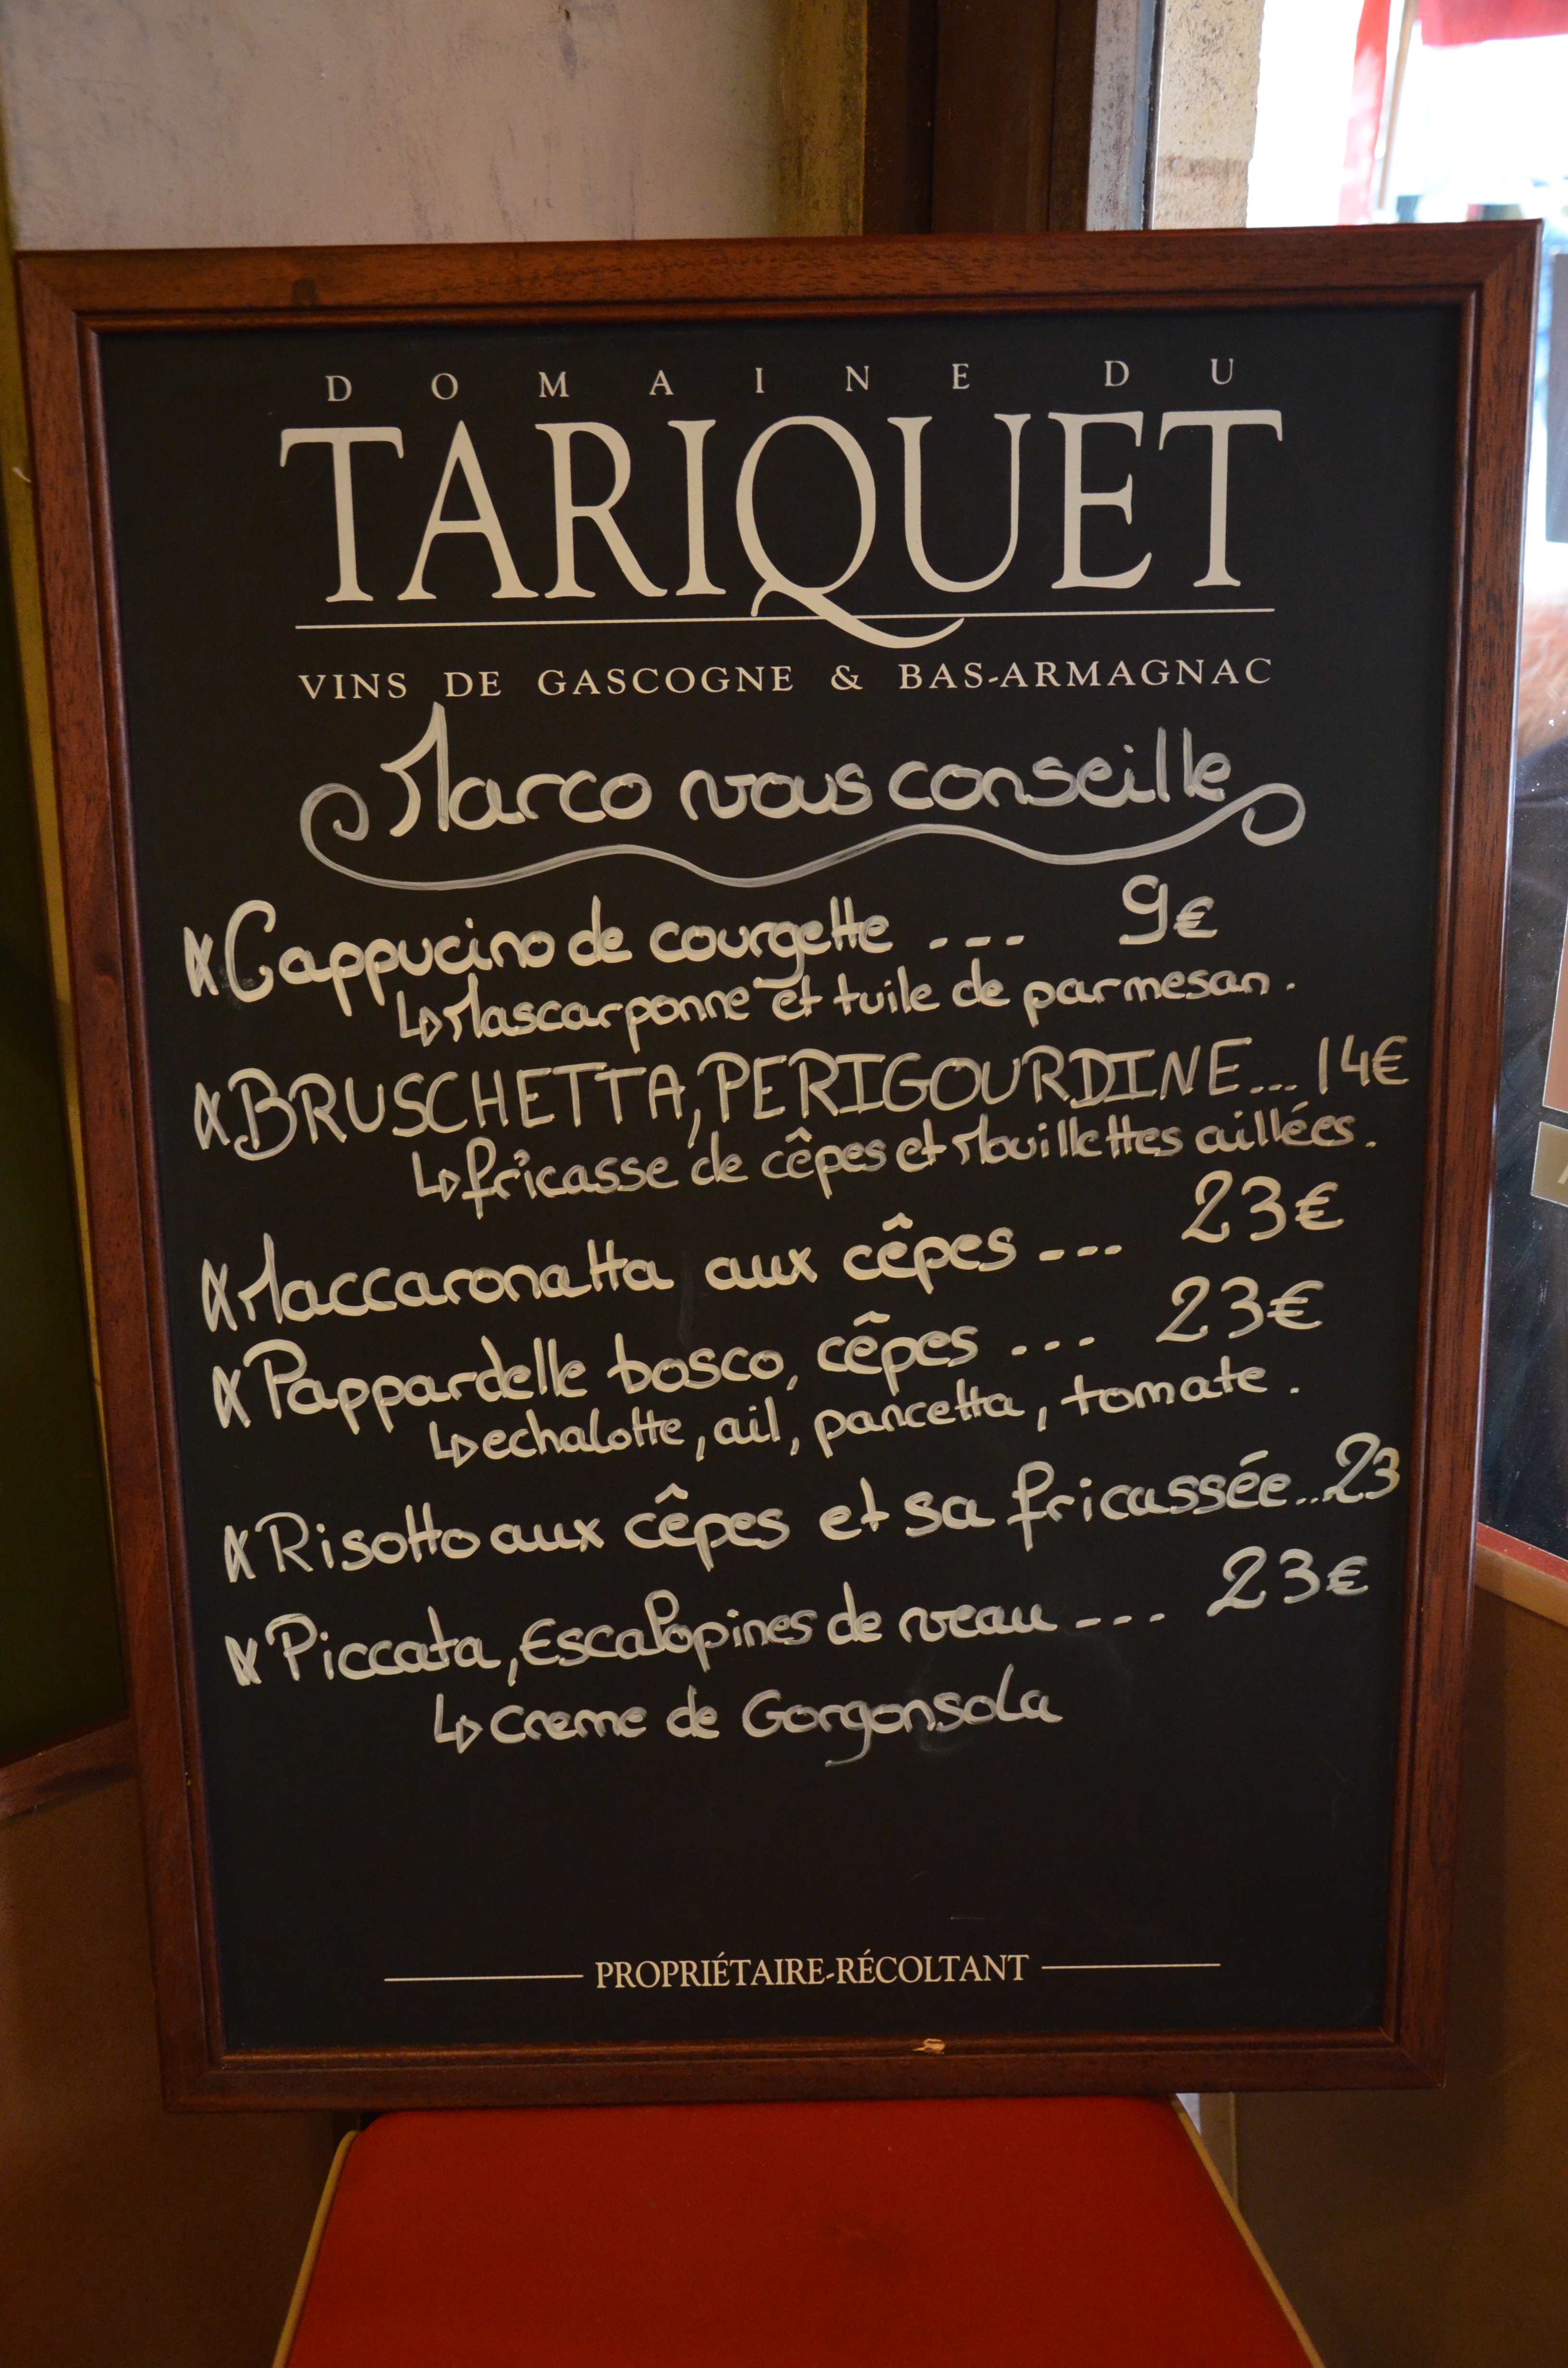 DOMAINE DU
TARIQUET
VINS DE GASCOGNE & BAS-ARMAGNAC
Marco vous conseille
Cappucino de courgette --- 9€
↳ Mascarponne et tuile de parmesan.
BRUSCHETTA, PERIGOURDINE... 14€
↳ fricasse de cêpes et Mouillettes aillées.
Maccaronatta aux cêpes --- 23€
Pappardelle bosco, cêpes ... 23€
↳ echalotte, ail, pancetta, tomate.
Risotto aux cêpes et sa fricassée...23
Piccata, Escalopines de veau --- 23€
↳ creme de Gorgonsola
PROPRIÉTAIRE-RÉCOLTANT